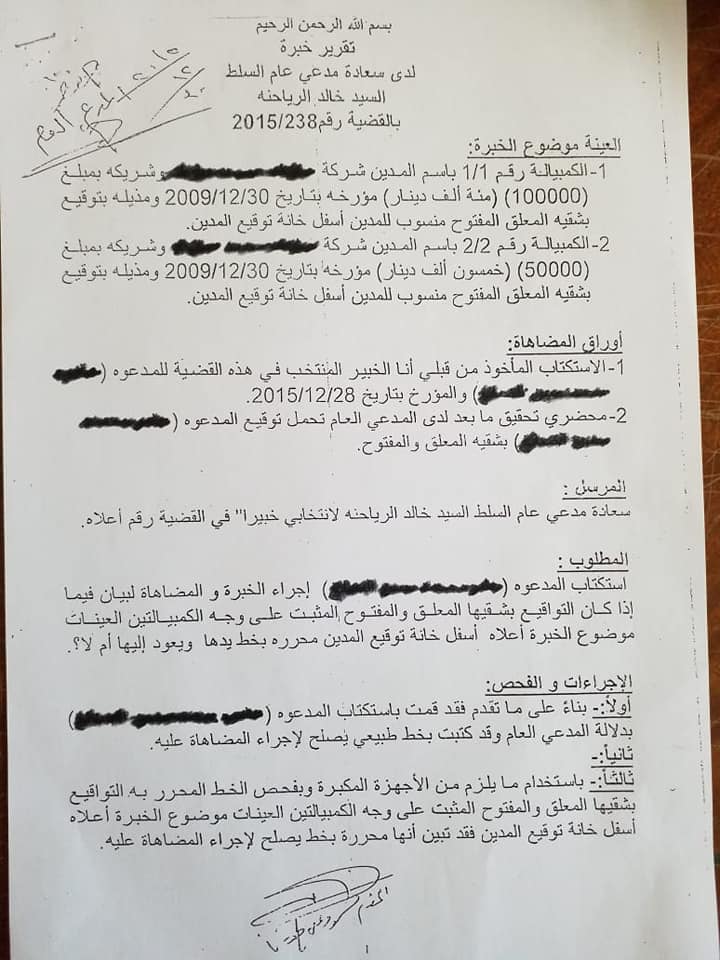 بسم الله الرحمن الرحيم
تقرير خبرة
لدى سعادة مدعي عام السلط
السيد خالد الرياحنه
بالقضية رقم 2015/238
العينة موضوع الخبرة:
1-الكمبيالة رقم 1/1 باسم المدين شركة وشريكه بمبلغ
(100000) (مئة ألف دينار) مؤرخه بتاريخ 2009/12/30 ومذيله بتوقيع
بشقيه المعلق المفتوح منسوب للمدين أسفل خانة توقيع المدين.
2-الكمبيالة رقم 2/2 باسم المدين شركة وشريكه بمبلغ
(50000) (خمسون ألف دينار) مؤرخه بتاريخ 2009/12/30 ومذيله بتوقيع
بشقيه المعلق المفتوح منسوب للمدين أسفل خانة توقيع المدين.
أوراق المضاهاة:
1-الاستكتاب المأخوذ من قبلي أنا الخبير المنتخب في هذه القضية للمدعوه (
) والمؤرخ بتاريخ 2015/12/28.
2-محضري تحقيق ما بعد لدى المدعي العام تحمل توقيع المدعوه (
) بشقيه المعلق والمفتوح.
المرسل :
سعادة مدعي عام السلط السيد خالد الرياحنه لانتخابي خبيرا" في القضية رقم أعلاه.
المطلوب :
استكتاب المدعوه ( ) إجراء الخبرة و المضاهاة لبيان فيما
إذا كان التواقيع بشقيها المعلق والمفتوح المثبت على وجه الكمبيالتين العينات
موضوع الخبرة أعلاه أسفل خانة توقيع المدين محرره بخط يدها ويعود إليها أم لا؟.
الإجراءات و الفحص:
أولاً:- بناءً على ما تقدم فقد قمت باستكتاب المدعوه ( )
بدلالة المدعي العام وقد كتبت بخط طبيعي يصلح لإجراء المضاهاة عليه.
ثانياً:-
ثالثاً:- باستخدام ما يلزم من الأجهزة المكبرة وبفحص الخط المحرر به التواقيع
بشقيها المعلق والمفتوح المثبت على وجه الكمبيالتين العينات موضوع الخبرة أعلاه
أسفل خانة توقيع المدين فقد تبين أنها محررة بخط يصلح لإجراء المضاهاة عليه.
1